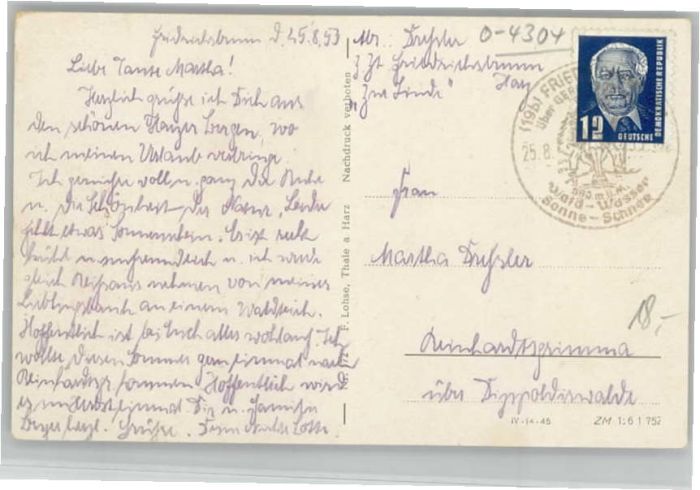 Friedrichsbrunn d. 25.8.53
Liebe Tante Martha!
Herzlich grüße ich Dich aus
den schönen Harzer Bergen, wo
ich meinen Urlaub verbringe.
Ich genieße voll u. ganz die Ruhe
u. die Schönheit der Natur. Leider
fehlt etwas Sonnenschein. Es ist recht
kühl u. unfreundlich u. ich werde
gleich Reißaus nehmen von meiner
Lieblingsbank an einem Waldteich.
Hoffentlich ist bei Euch alles wohlauf. Ich
wollte diesen Sommer gern einmal nach
Reinhardtsgr. kommen. Hoffentlich wird
es im Herbst einmal Dir u. Familie
herzl. Grüße. Deine Lotte
Nachdruck verboten
F. Lohse, Thale a. Harz
Abs. Dreßler
z. Zt. Friedrichsbrunn
Harz
"Zur Linde"
0-4304
12
DEUTSCHE
DEMOKRATISCHE REPUBLIK
(19b) FRIE
über
25.8.
Wald-Wasser
Sonne-Schnee
Frau
Martha Dreßler
Reinhardtsgrimma
über Dippoldiswalde
18,-
IV-14-45 ZM 1:6 1 752